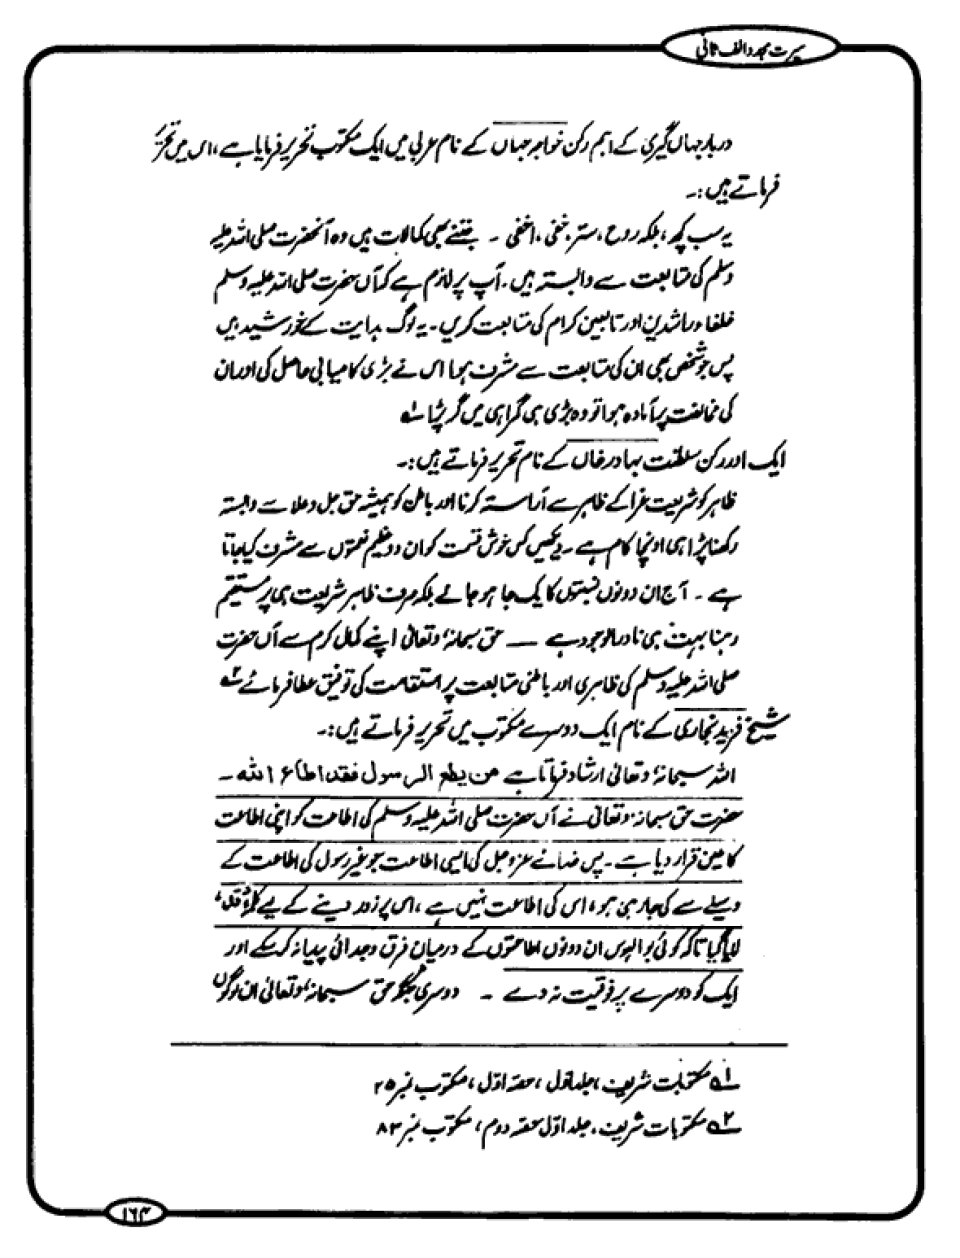 سیرت مجدد الف ثانی
دربار جہاں گیری کے اہم رکن خواجہ جہاں کے نام عربی میں ایک مکتوب تحریر فرمایا ہے، اس میں تحریر
فرماتے ہیں:۔
یہ سب کچھ، بلکہ روح، سر، خفی، اخفی ۔ جتنے بھی کمالات ہیں وہ آنحضرت صلی اللہ علیہ
وسلم کی متابعت سے وابستہ ہیں۔ آپ پر لازم ہے کہ آں حضرت صلی اللہ علیہ وسلم
خلفاء راشدین اور تابعین کرام کی متابعت کریں۔ یہ لوگ ہدایت کے خورشید ہیں
پس جو شخص بھی ان کی متابعت سے مشرف ہوا اس نے بڑی کامیابی حاصل کی اور ان
کی مخالفت پر آمادہ ہوا تو وہ بڑی ہی گمراہی میں گر پڑا ۱؎
ایک اور رکن سلطنت بہادر خاں کے نام تحریر فرماتے ہیں:۔
ظاہر کو شریعت غرا کے ظاہر سے آراستہ کرنا اور باطن کو ہمیشہ حق جل وعلا سے وابستہ
رکھنا بڑا ہی اونچا کام ہے ۔ دیکھیں کس خوش قسمت کو ان دو عظیم نعمتوں سے مشرف کیا جاتا
ہے ۔ آج ان دونوں نسبتوں کا یک جا ہو جائے بلکہ صرف ظاہر شریعت ہی پر مستقیم
رہنا بہت ہی نادر الوجود ہے — حق سبحانہٗ وتعالیٰ اپنے کمال کرم سے آں حضرت
صلی اللہ علیہ وسلم کی ظاہری اور باطنی متابعت پر استقامت کی توفیق عطا فرمائے ۲؎
شیخ فرید بخاری کے نام ایک دوسرے مکتوب میں تحریر فرماتے ہیں:۔
اللہ سبحانہٗ وتعالیٰ ارشاد فرماتا ہے من یطع الرسول فقد اطاع اللہ ۔
حضرت حق سبحانہٗ وتعالیٰ نے آں حضرت صلی اللہ علیہ وسلم کی اطاعت کو اپنی اطاعت
کا عین قرار دیا ہے ۔ پس خدائے عزوجل کی ایسی اطاعت جو غیر رسول کی اطاعت کے
وسیلے سے کی جا رہی ہو، اس کی اطاعت نہیں ہے، اس پر زور دینے کے لیے کلمۂ "قد"
لایا گیا تاکہ کوئی بوالہوس ان دونوں اطاعتوں کے درمیان فرق و جدائی پیدا نہ کر سکے اور
ایک کو دوسرے پر فوقیت نہ دے ۔ دوسری جگہ حق سبحانہٗ وتعالیٰ ان لوگوں
۱؎ مکتوبات شریف، جلد اول، حصہ اول، مکتوب نمبر ۲۵
۲؎ مکتوبات شریف، جلد اول حصہ دوم، مکتوب نمبر ۸۳
۱۶۴